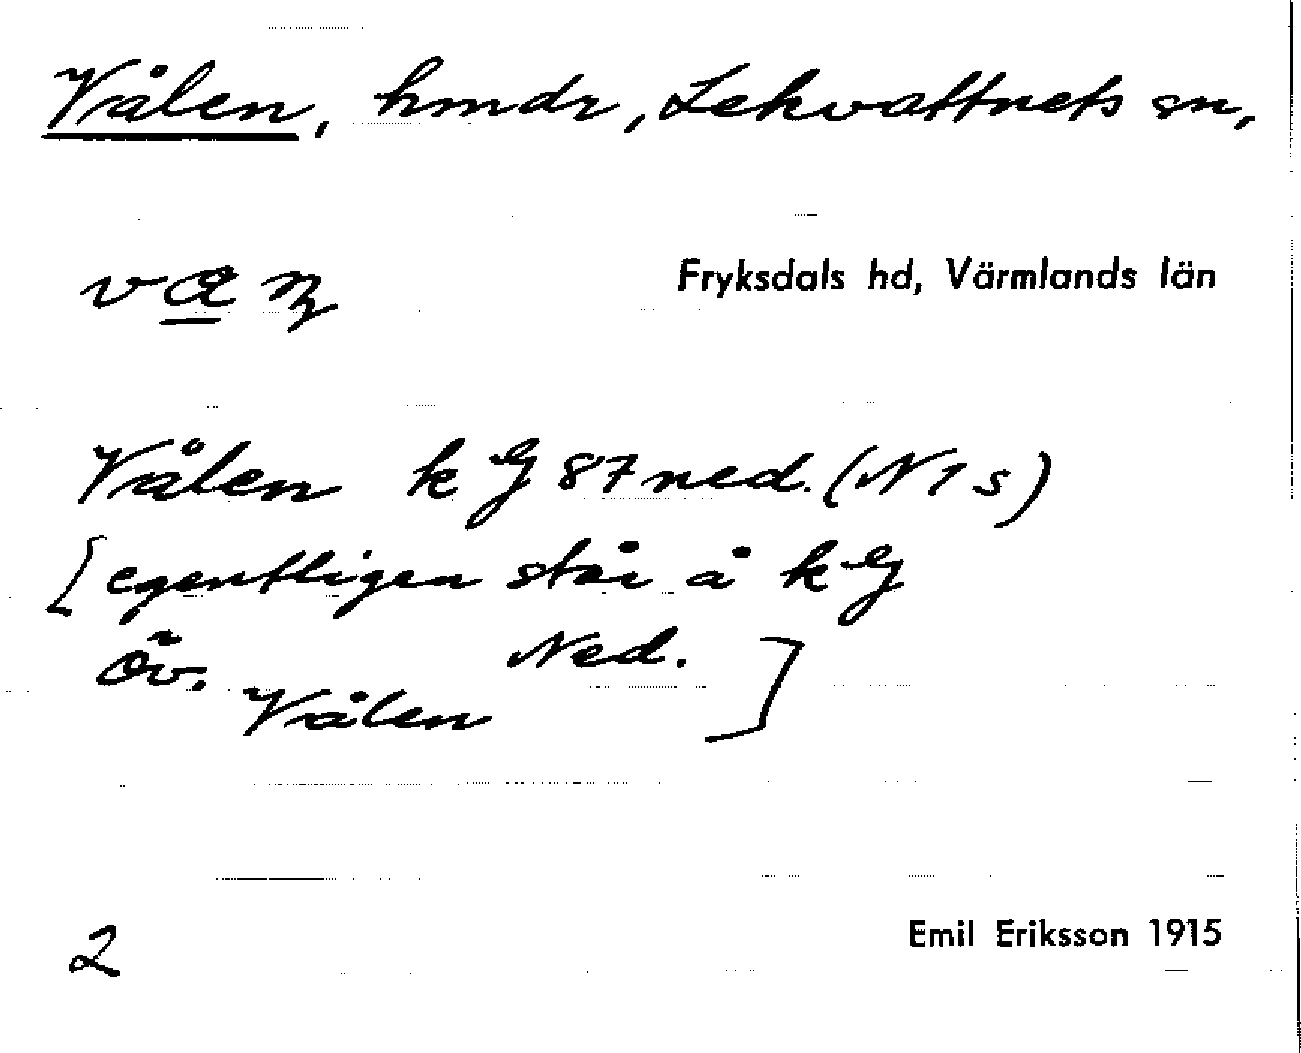 Vålen, hmdr, Lekvattnets sn,
Fryksdals hd, Värmlands län
Vålen k G 87 ned. (N 1 s)
[egentligen står å k G
Öv. Ned.
Vålen]
2
Emil Eriksson 1915